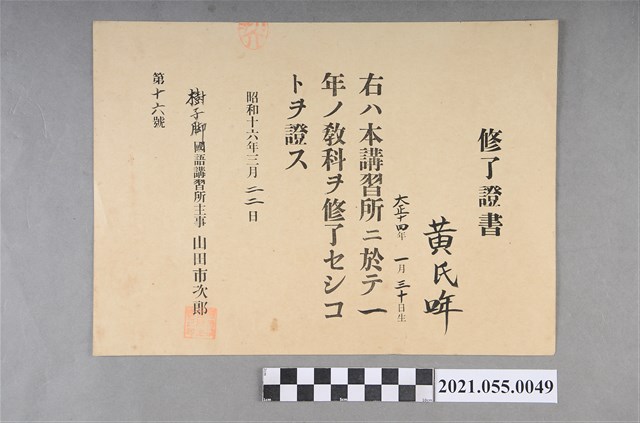 修了證書
黃氏哖
大正十四年 一月 三十日生
右ハ本講習所ニ於テ一
年ノ教科ヲ修了セシコ
トヲ證ス
昭和十六年三月二二日
樹子脚國語講習所主事 山田市次郎
第十六號
2021.055.0049